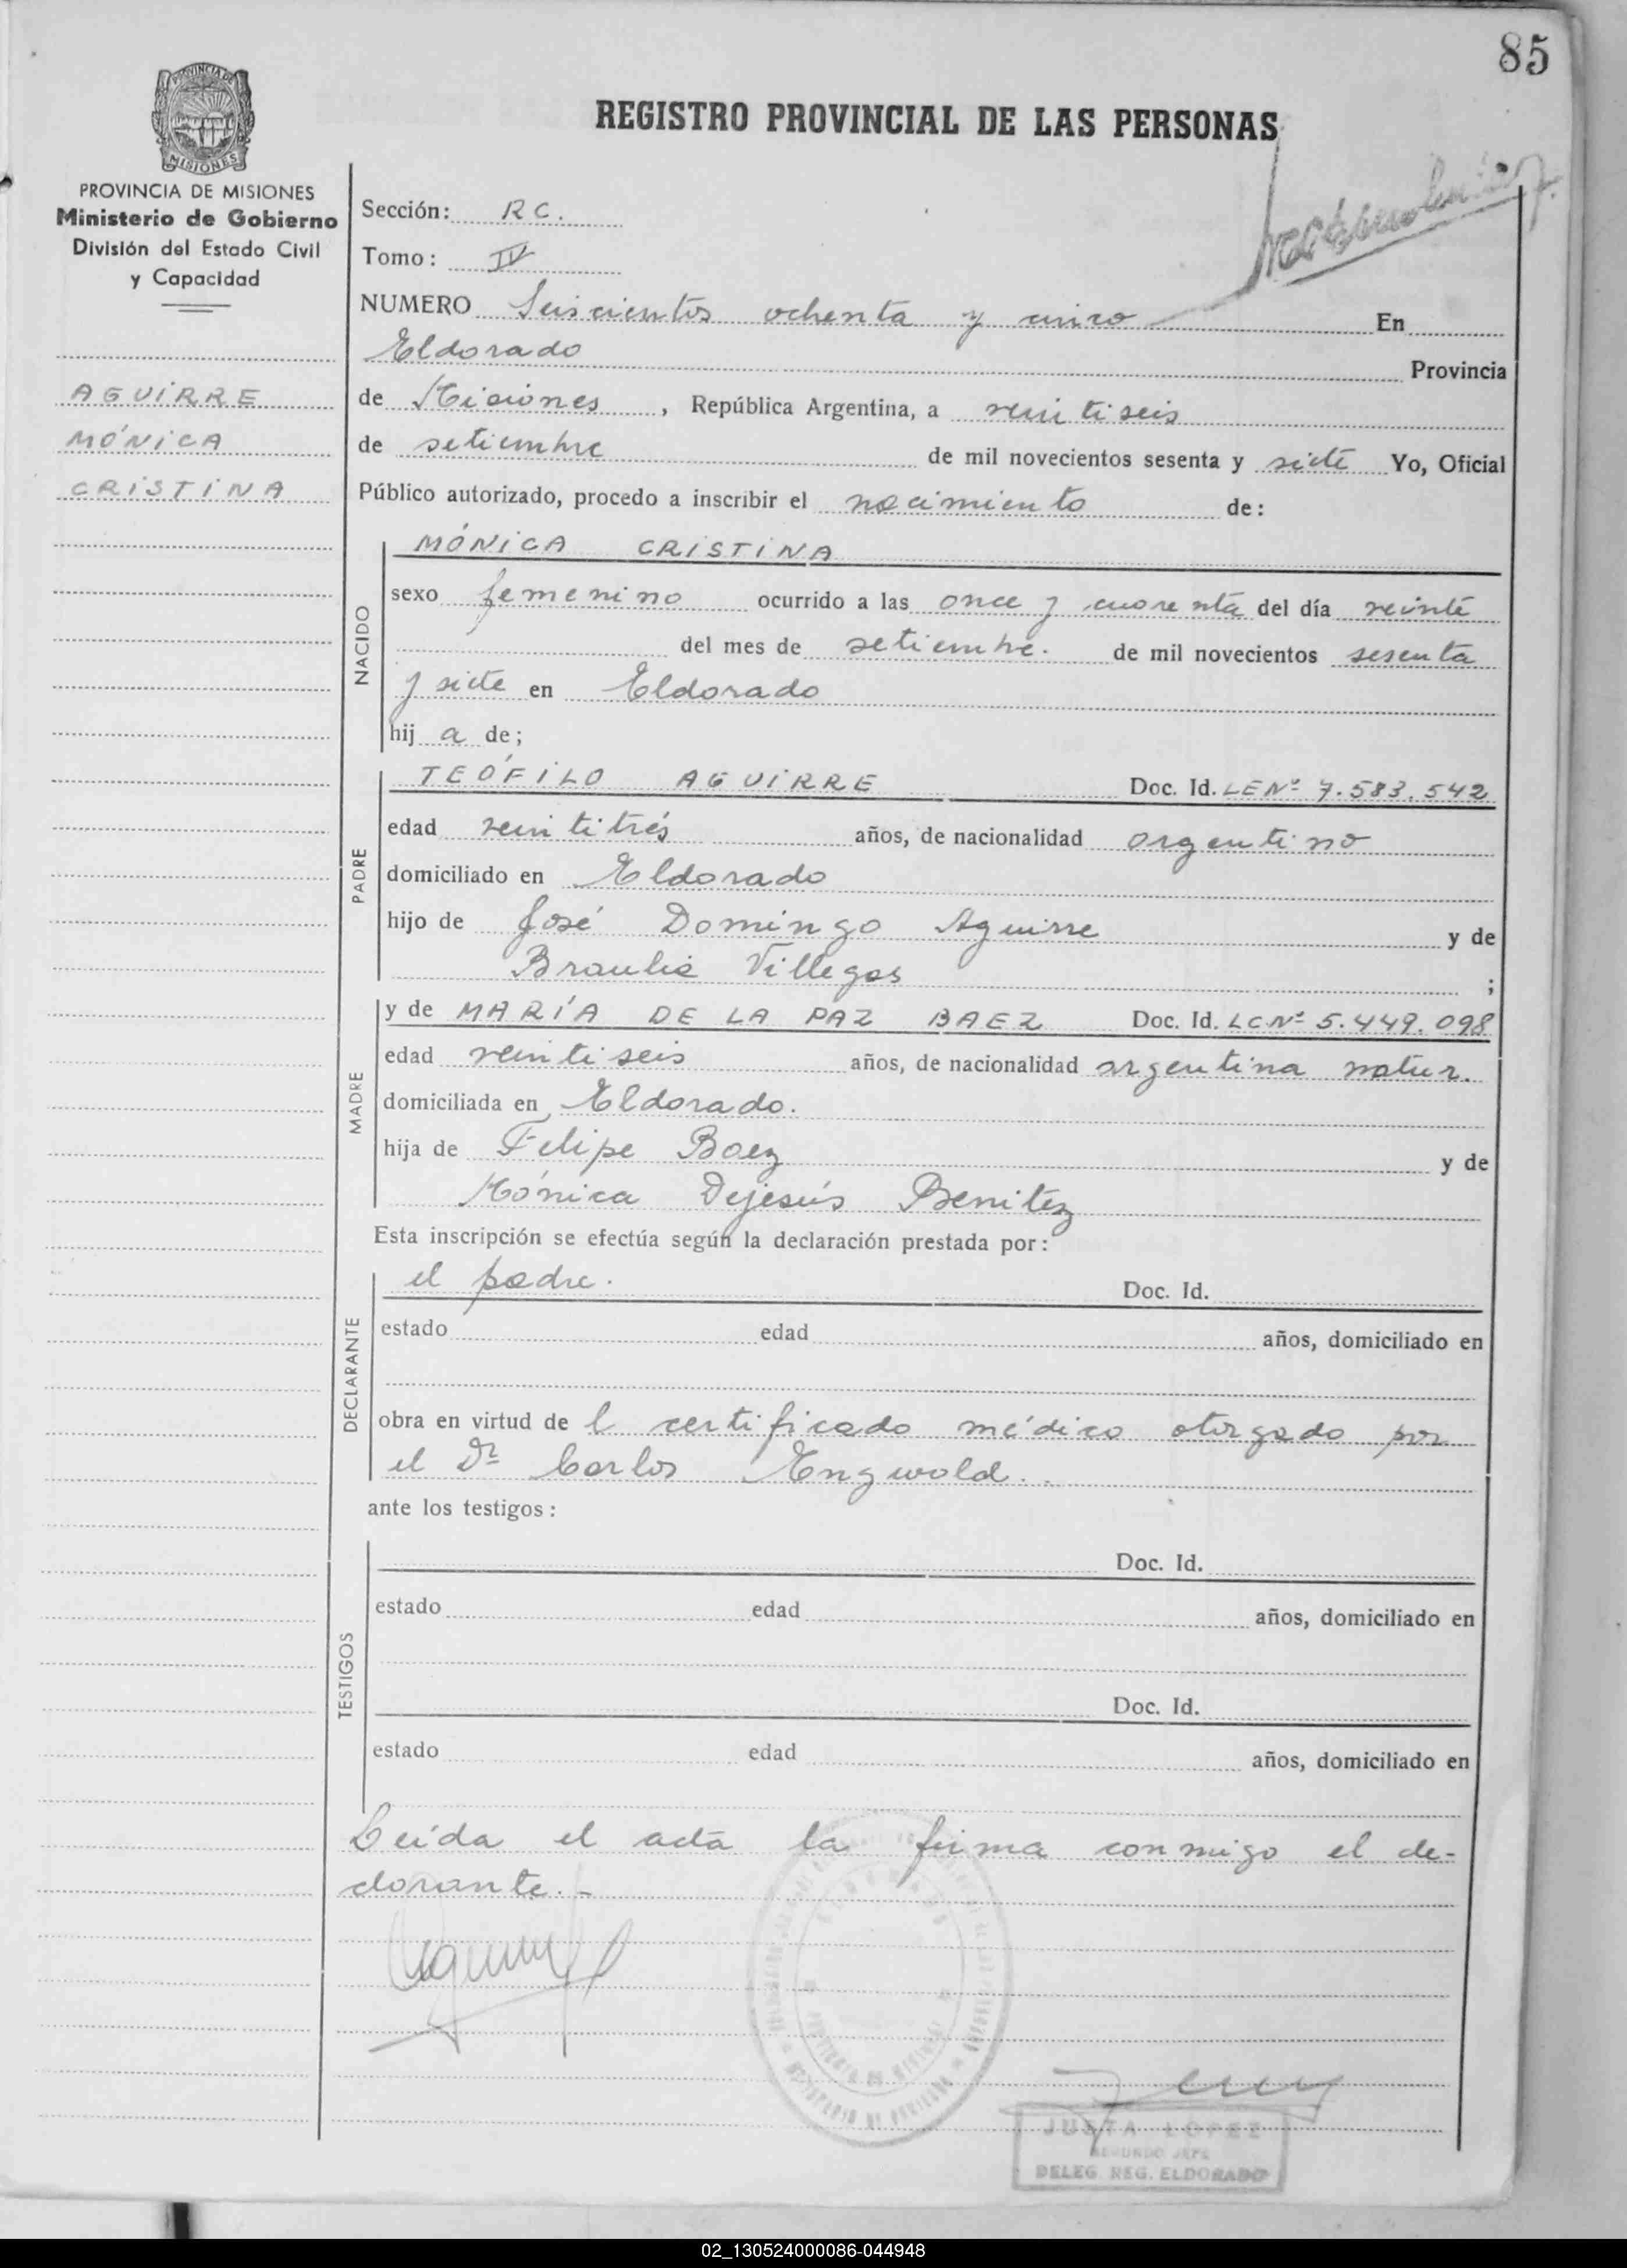 85
PROVINCIA DE
MISIONES
REGISTRO PROVINCIAL DE LAS PERSONAS
PROVINCIA DE MISIONES
Ministerio de Gobierno
División del Estado Civil
y Capacidad
AGUIRRE
MÓNICA
CRISTINA
Sección: RC.
Tomo: IV
NUMERO Seiscientos ochenta y cinco En
Eldorado Provincia
de Misiones, República Argentina, a veintiseis
de setiembre de mil novecientos sesenta y siete Yo, Oficial
Público autorizado, procedo a inscribir el nacimiento de:
NACIDO
MÓNICA CRISTINA
sexo femenino ocurrido a las once y cuarenta del día veinte
del mes de setiembre. de mil novecientos sesenta
y siete en Eldorado
hij a de;
PADRE
TEÓFILO AGUIRRE Doc. Id. LE Nº 7.583.542
edad veintitrés años, de nacionalidad argentino
domiciliado en Eldorado
hijo de José Domingo Aguirre y de
Braulia Villegas ;
MADRE
y de MARÍA DE LA PAZ BAEZ Doc. Id. LC Nº 5.449.098
edad veintiseis años, de nacionalidad argentina natur.
domiciliada en Eldorado.
hija de Felipe Baez y de
Mónica Dejesús Benitez
Esta inscripción se efectúa según la declaración prestada por:
DECLARANTE
el padre. Doc. Id.
estado edad años, domiciliado en
obra en virtud de l certificado médico otorgado por
el Dr Carlos Engwald.
ante los testigos:
TESTIGOS
Doc. Id.
estado edad años, domiciliado en
Doc. Id.
estado edad años, domiciliado en
Leída el acta la firma conmigo el de-
clarante.-
JUSTA LOPEZ
SEGUNDO JEFE
DELEG. REG. ELDORADO
02_130524000086-044948